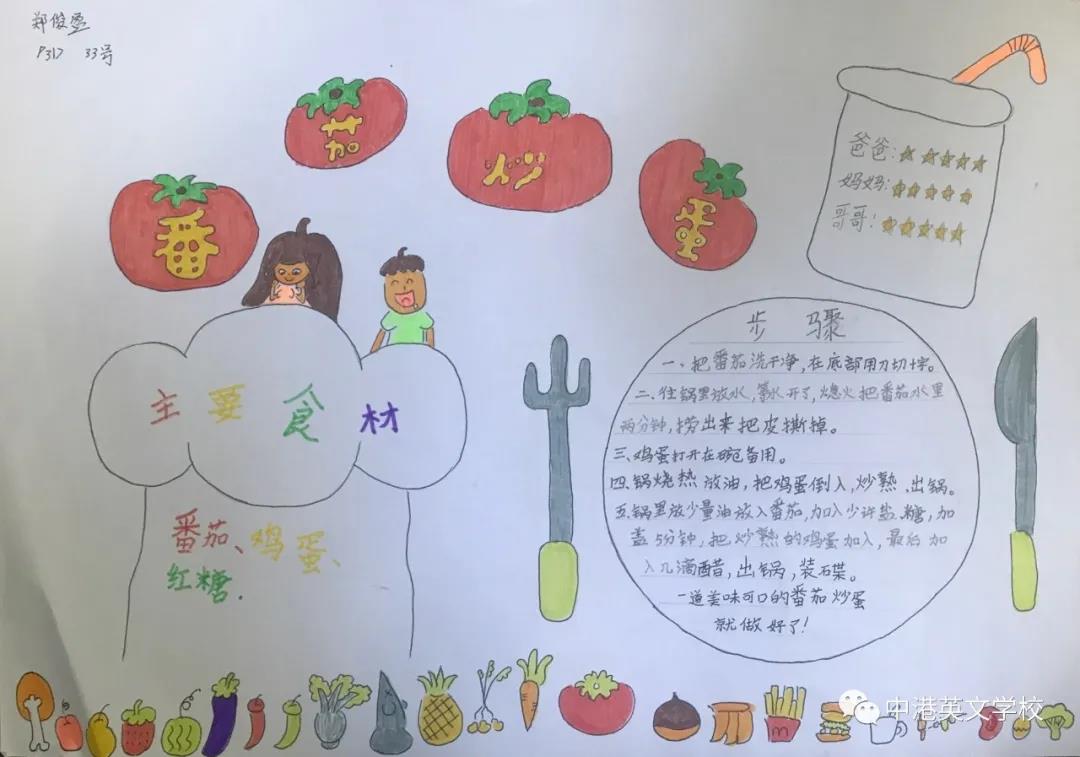 郑俊
P31) 33号
番茄炒蛋
爸爸:★★★★★
妈妈:★★★★★
哥哥:★★★★★
主要食材
番茄、鸡蛋、
红糖.
步骤
一、把番茄洗干净,在底部用刀切十字。
二、往锅里放水,等水开了,熄火把番茄水里
两分钟,捞出来把皮撕掉。
三、鸡蛋打开在碗包备用。
四、锅烧热放油,把鸡蛋倒入,炒熟、出锅。
五、锅里放少量油放入番茄,加入少许盐、糖,加
盖5分钟,把炒熟的鸡蛋加入,最后加
入几滴醋,出锅,装碟。
一道美味可口的番茄炒蛋
就做好了!
M
中港英文学校